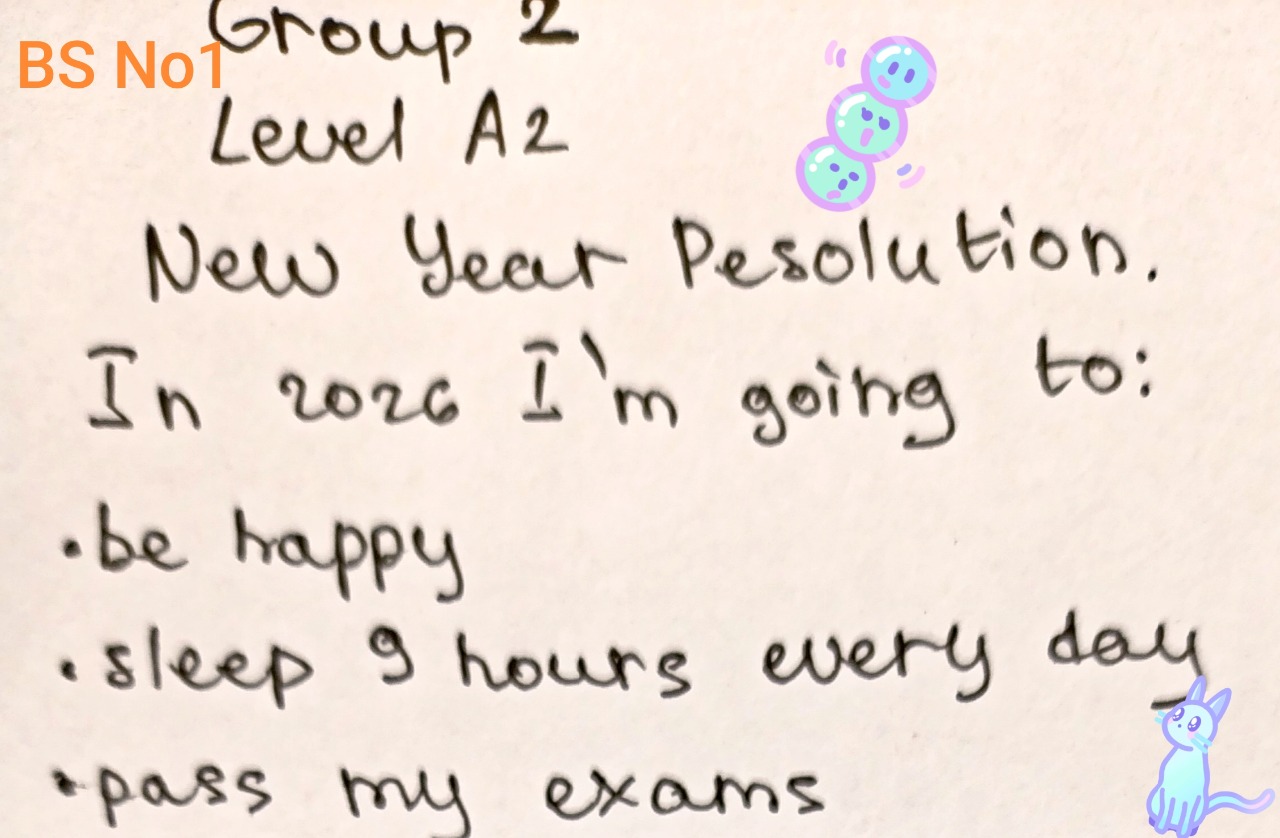 Group 2
BS No1
Level A2
New Year Pesolution.
In 2026 I'm going to:
•be happy
•sleep 9 hours every day
•pass my exams